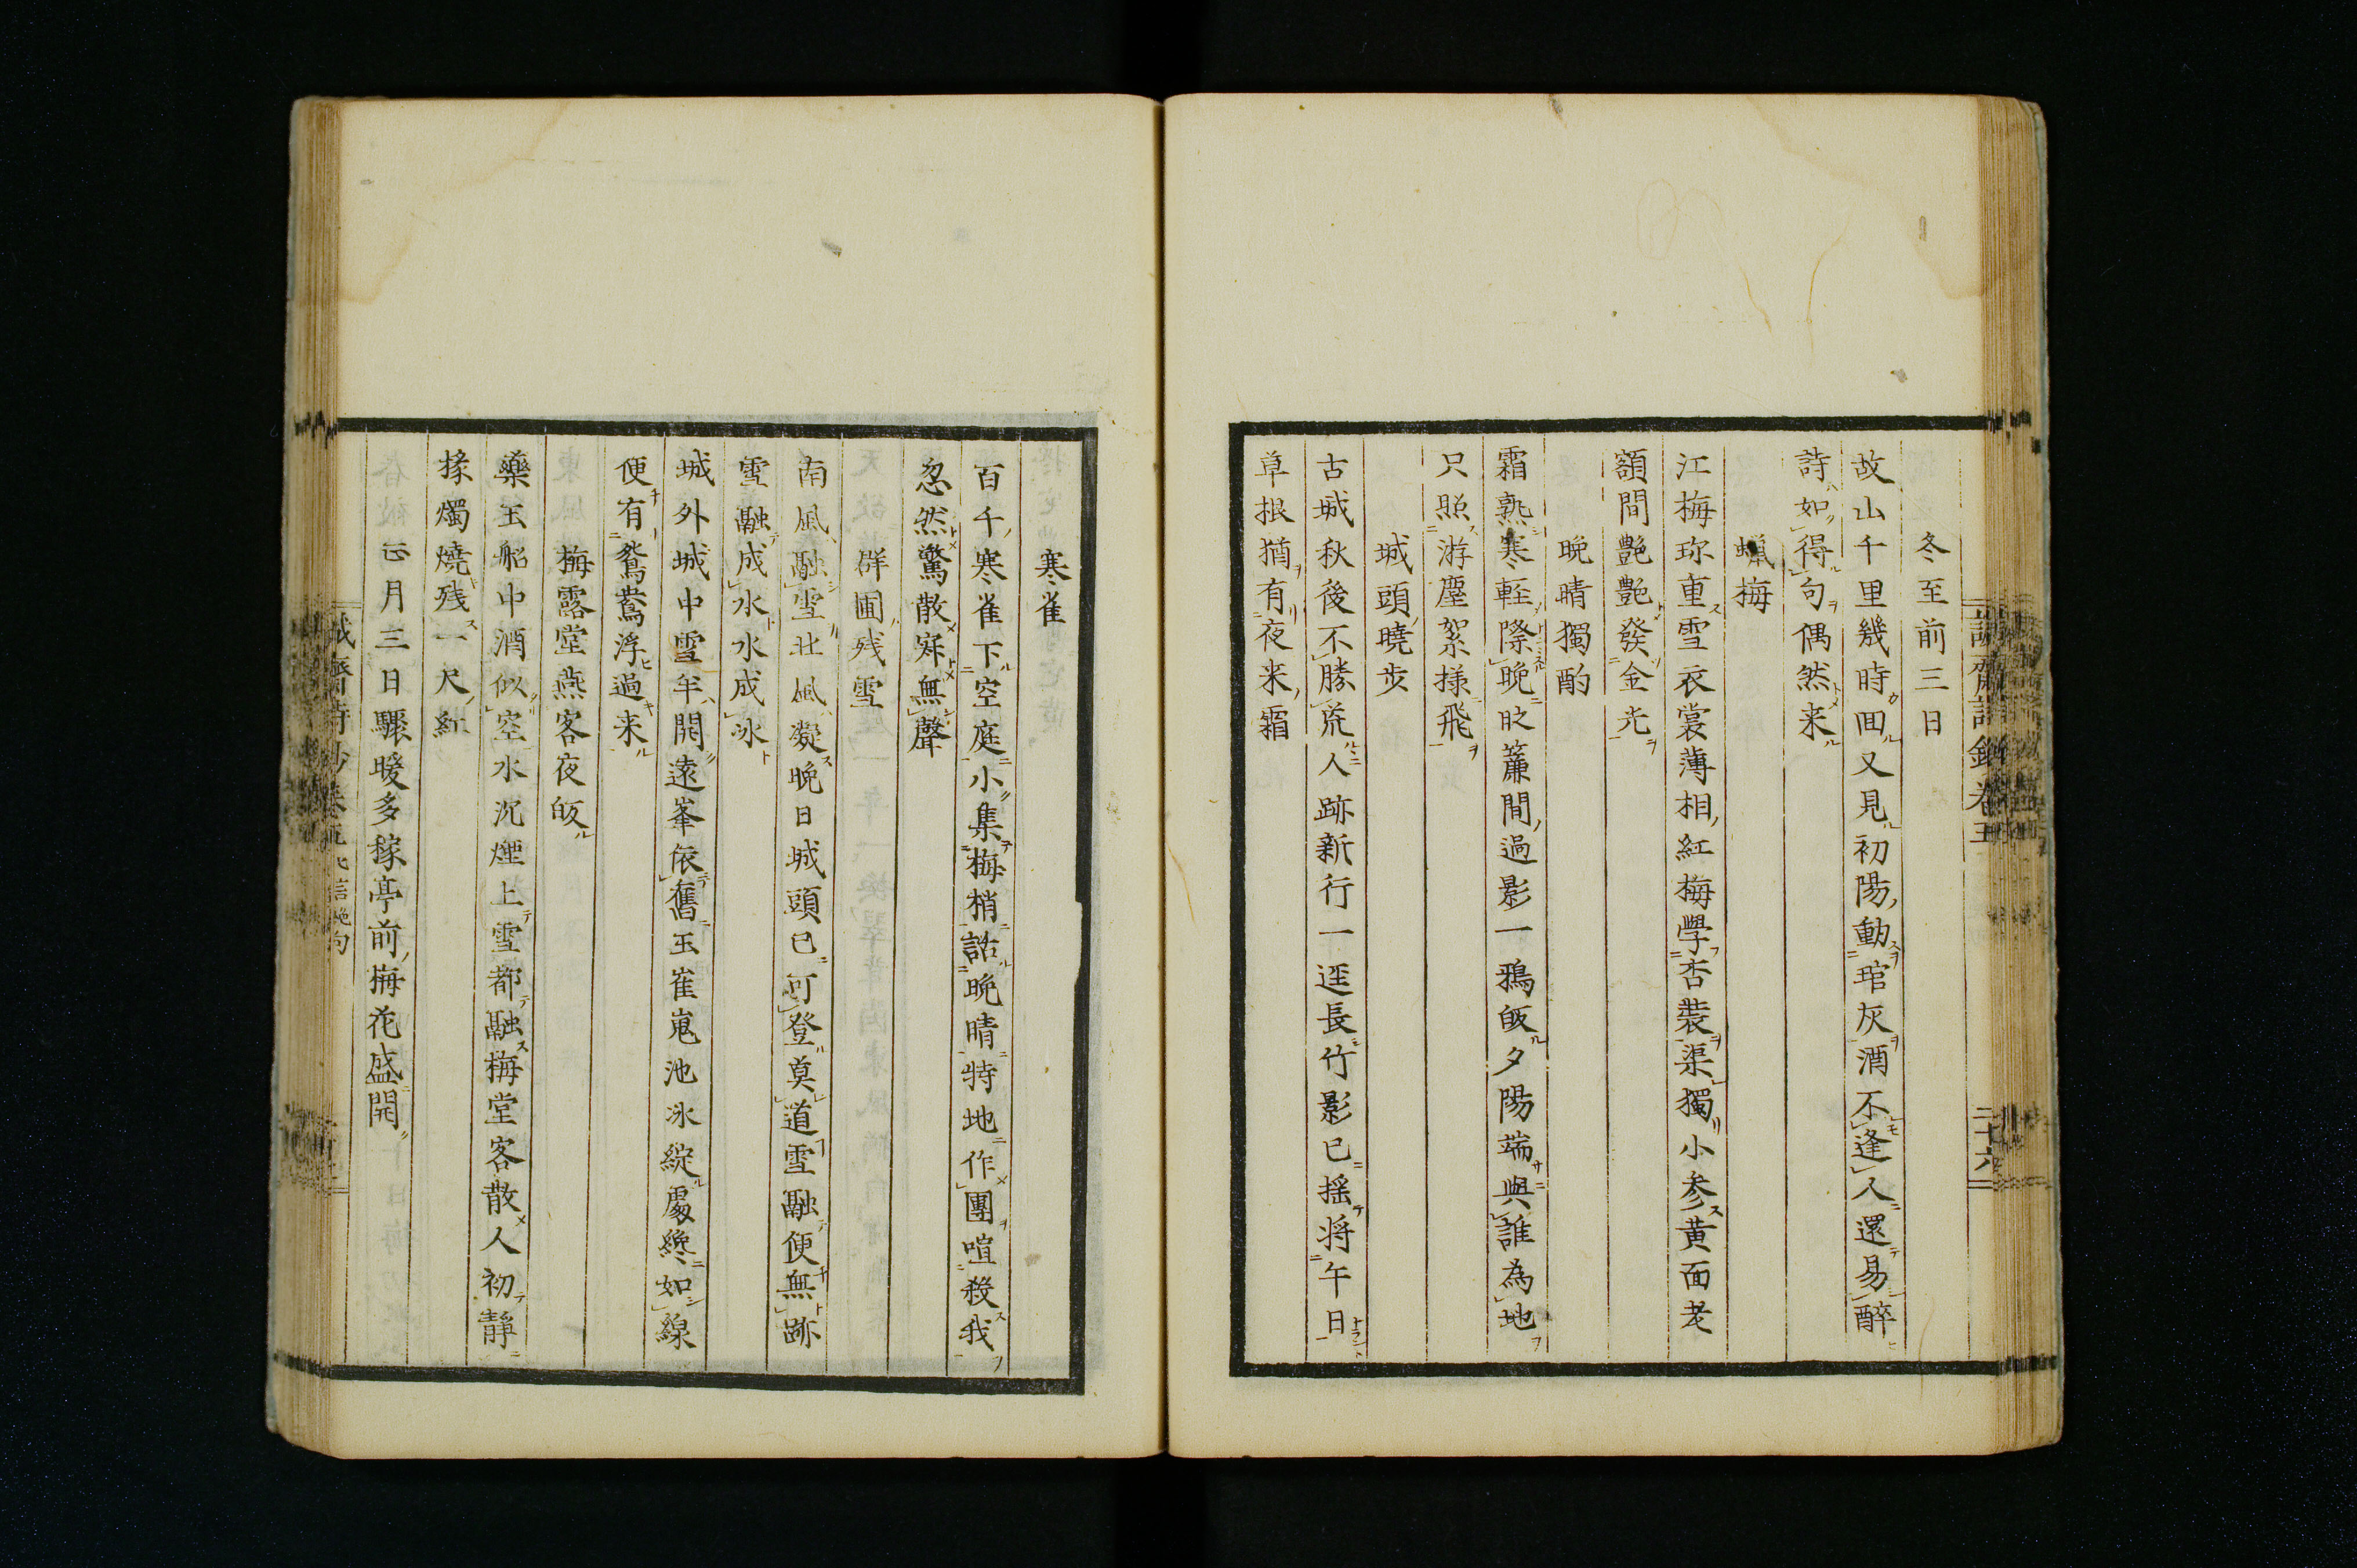 冬至前三日
故山千里幾時回又見初陽動琯灰酒不逢人還易醉
詩如得句偶然来
蠟梅
江梅珎重雪衣裳薄相紅梅學杏裝渠獨小参黄面老
額間艶艶發金光
晚晴獨酌
霜熟寒輕際晚
簾間過影一鴉皈夕陽端與誰為地
只照游塵絮様飛
城頭曉步
古城秋後不勝荒人跡新行一逕長竹影已揺将午日
草根猶有夜来霜
寒雀
百千寒雀下空庭小集梅梢話晚晴特地作團喧殺我
忽然驚散寂無聲
群圃残雪
南風融雪北風凝晚日城頭已可登莫道雪融便無跡
雪融成水水成冰
城外城中雪半開遠峯依舊玉崔嵬池冰綻處纔如線
便有鴛鴦浮過来
梅露堂燕客夜皈
藥玉船中酒似空水沉煙上雪都融梅堂客散人初靜
椽燭燒残一尺紅
正月三日驟暖多稼亭前梅花盛開